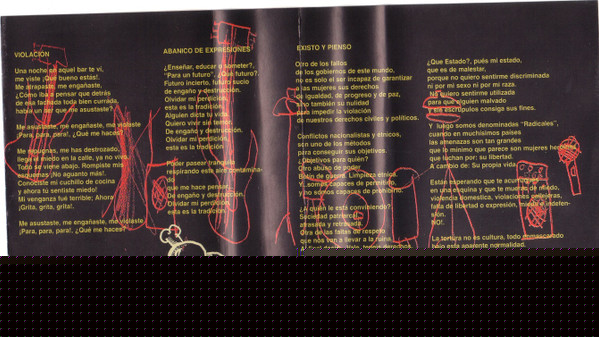 VIOLACION
Una noche en aquel bar te vi,
me viste ¡Que bueno estás!.
Me atrapaste, me engañaste,
¿Cómo iba a pensar que detrás
de esa fachada toda bien currada,
había un tío que me asustaste?
Me asustaste, me engañaste, me violaste
¡Para, para, para!. ¿Qué me haces?
Me repugnas, me has destrozado,
llegó el miedo en la calle, ya no vivo.
Todo se viene abajo. Rompiste mis
esquemas ¡No aguanto más!.
Conociste mi cuchillo de cocina
y ahora tú sentiste miedo!
Mi venganza fue terrible; Ahora
¡Grita, grita, grita!.
Me asustaste, me engañaste, me violaste
¡Para, para, para!. ¿Qué me haces?
ABANICO DE EXPRESIONES
¿Enseñar, educar o someter?.
"Para un futuro", ¿Qué futuro?.
Futuro incierto, futuro sucio
de engaño y destrucción.
Olvidar mi perdición,
esta es la tradición.
Alguien dicta tu vida
Quiero vivir sin temor.
De engaño y destrucción.
Olvidar mi perdición
esta es la tradición
Poder pasear tranquilo
respirando este aire contamina-
do
que me hace pensar.
Del engaño y destrucción.
Olvidar mi perdición,
esta es la tradición.
EXISTO Y PIENSO
Otro de los fallos
de los gobiernos de este mundo,
no es solo el ser incapaz de garantizar
a las mujeres sus derechos
de igualdad, de progreso y de paz,
sino también su nulidad
para impedir la violación
de nuestros derechos civiles y políticos.
Conflictos nacionalistas y étnicos,
son uno de los métodos
para conseguir sus objetivos.
¿Objetivos para quién?
Otro abuso de poder.
Limpieza étnica.
Y, somos capaces de permitirlo,
y no somos capaces de prohibirlo.
¿A quién le está conviniendo?
Sociedad patriarcal,
atrasada y retrasada.
Otra de las faltas de respeto
que nos van a llevar a la ruina.
¿Que Estado?, pués mi estado,
que es de malestar,
porque no quiero sentirme discriminada
ni por mi sexo ni por mi raza.
No quiero sentirme utilizada
para que alguien malvado
sin escrúpulos consiga sus fines.
Y luego somos denominadas "Radicales",
cuando en muchísimos países
las amenazas son tan grandes
que lo mínimo que parece son mujeres heroínas
que luchan por: su libertad.
A cambio de: Su propia vida.
Están esperando que te acurruques
en una esquina y que te mueras de miedo,
violencia domestica, violaciones
falta de libertad o expresión, miedo e indefen-
sión.
NO!.
La tortura no es cultura, todo enmascarado
bajo esta aparente normalidad.